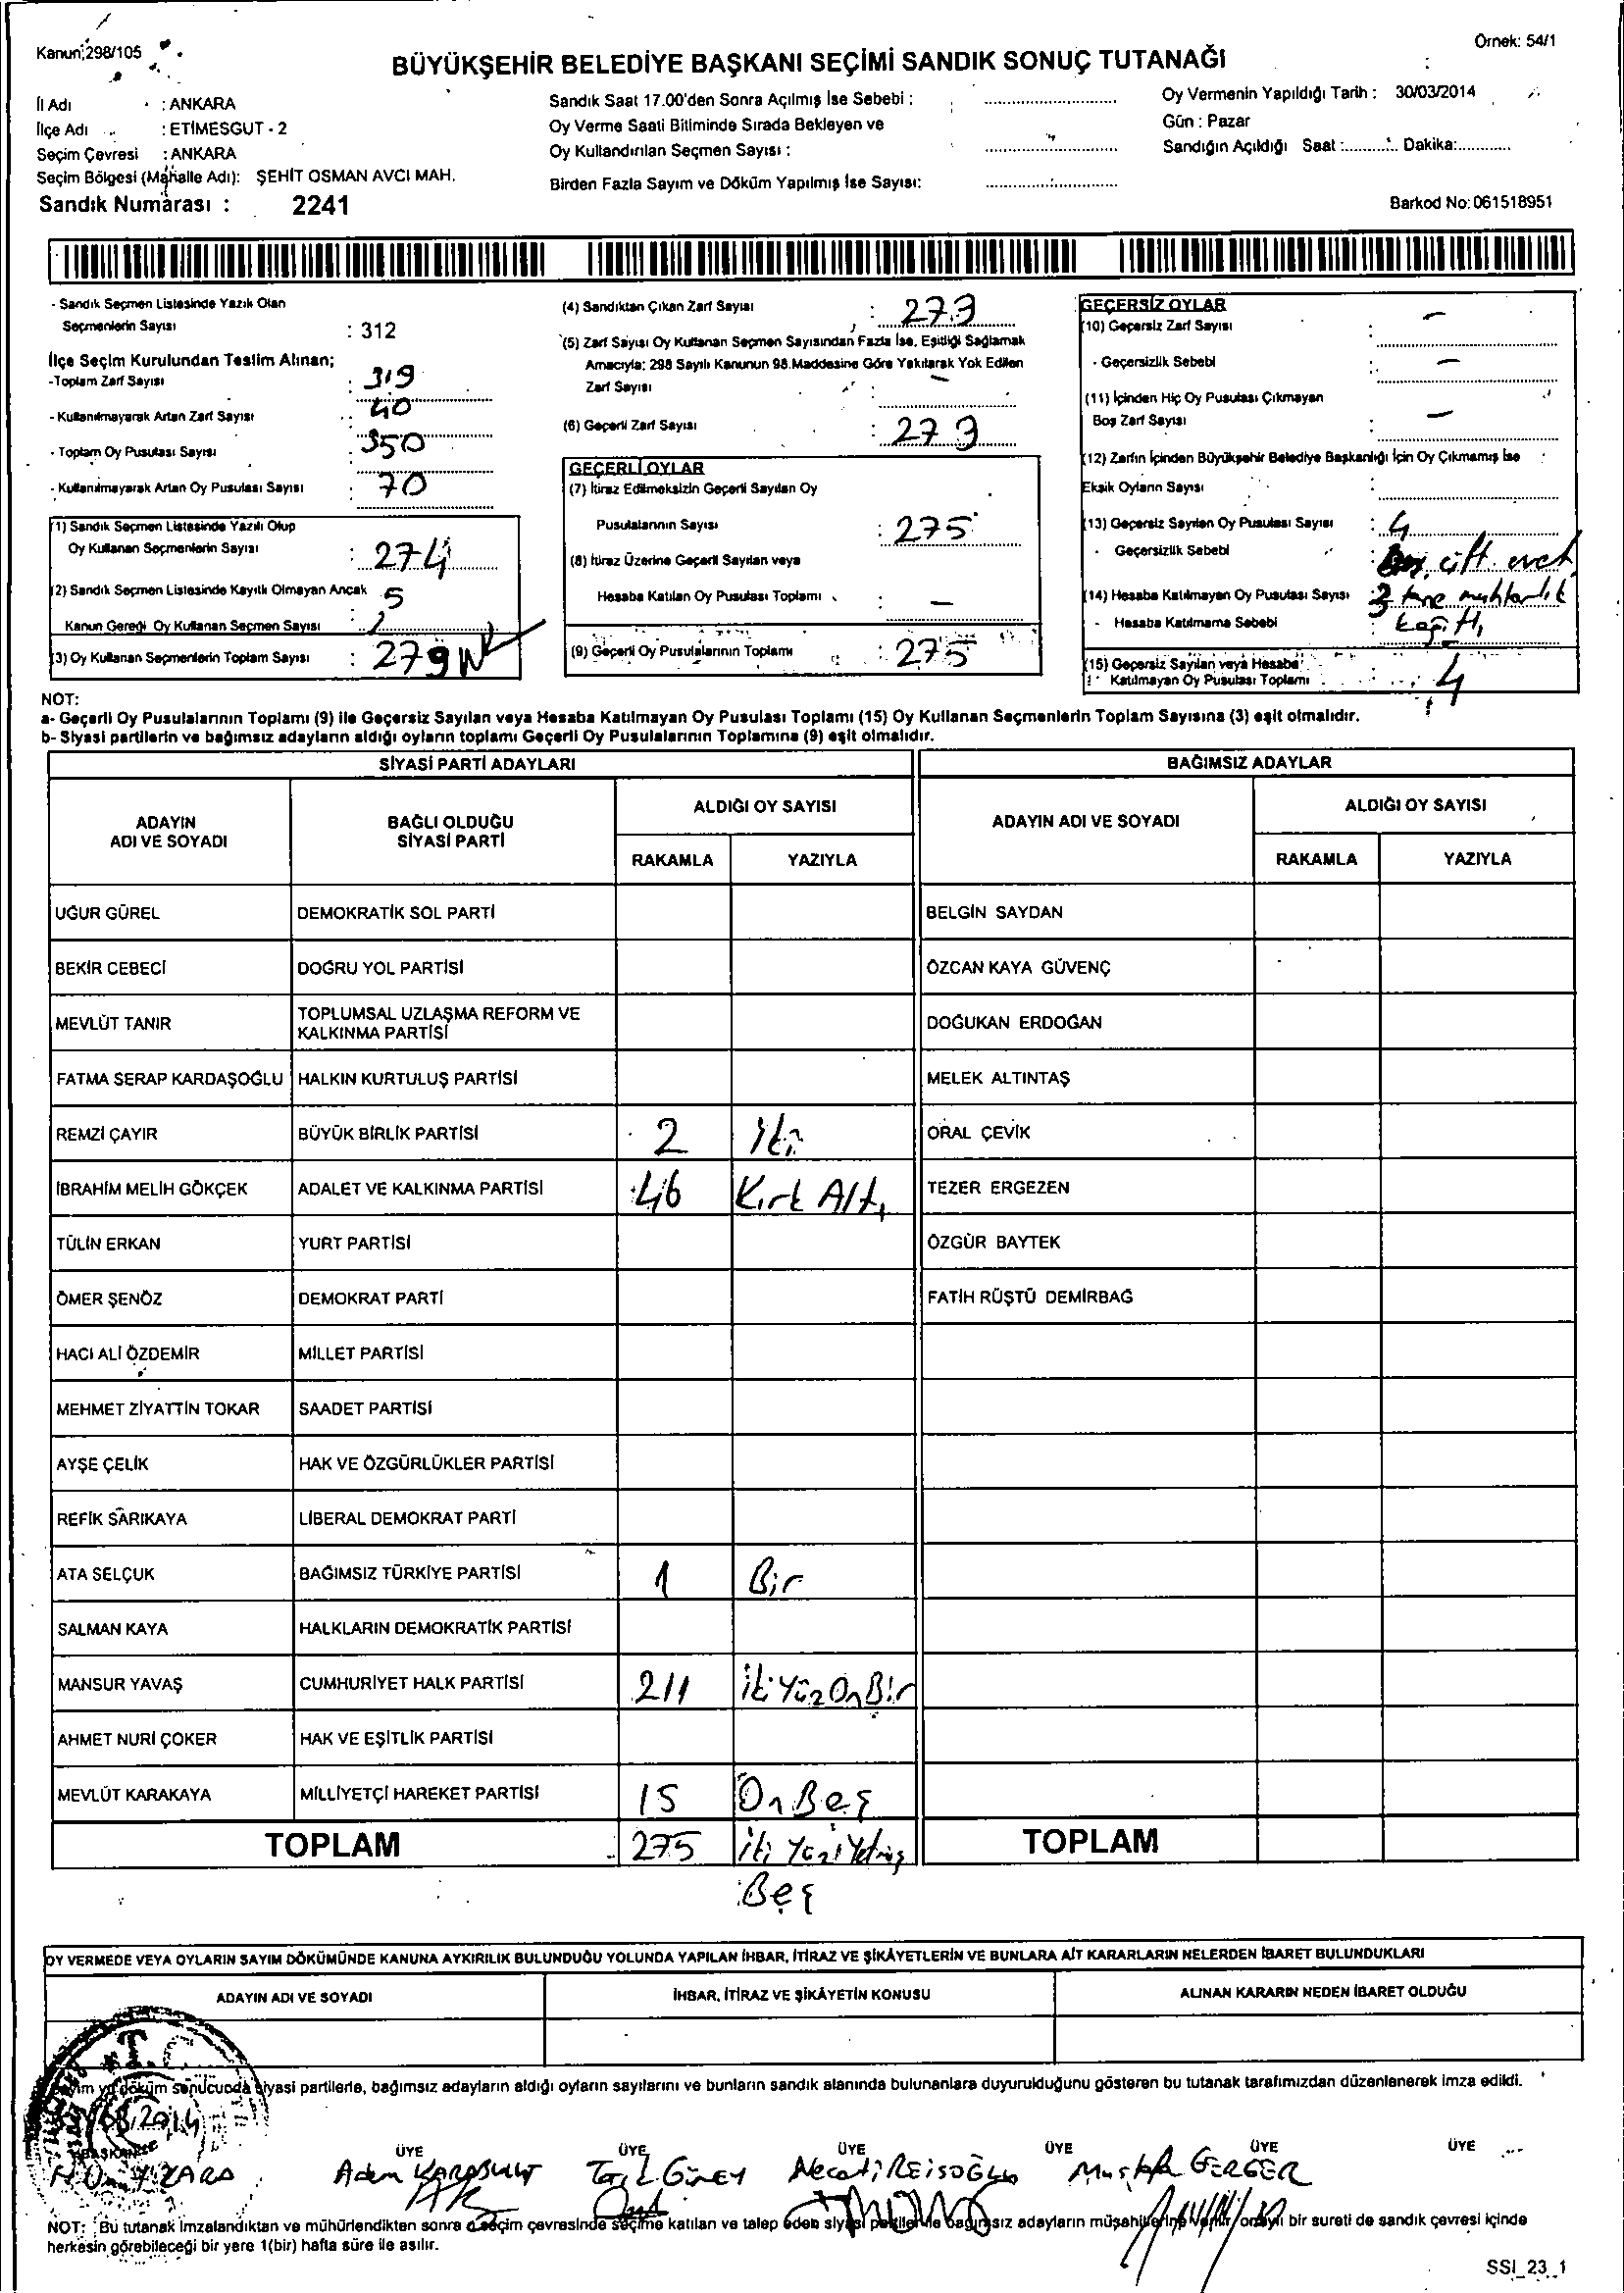 Kanun;298/105
Örnek: 54/1
BÜYÜKŞEHİR BELEDİYE BAŞKANI SEÇİMİ SANDIK SONUÇ TUTANAĞI
İl Adı : ANKARA
İlçe Adı : ETİMESGUT - 2
Seçim Çevresi : ANKARA
Seçim Bölgesi (Mahalle Adı): ŞEHİT OSMAN AVCI MAH.
Sandık Numarası : 2241
Sandık Saat 17.00'den Sonra Açılmış İse Sebebi :
Oy Verme Saati Bitiminde Sırada Bekleyen ve
Oy Kullandırılan Seçmen Sayısı :
Birden Fazla Sayım ve Döküm Yapılmış İse Sayısı:
Oy Vermenin Yapıldığı Tarih : 30/03/2014
Gün : Pazar
Sandığın Açıldığı Saat :........... Dakika:............
Barkod No: 061518951
- Sandık Seçmen Listesinde Yazılı Olan
Seçmenlerin Sayısı : 312
İlçe Seçim Kurulundan Teslim Alınan;
-Toplam Zarf Sayısı : 319
- Kullanılmayarak Artan Zarf Sayısı : 40
- Toplam Oy Pusulası Sayısı : 350
- Kullanılmayarak Artan Oy Pusulası Sayısı : 70
(1) Sandık Seçmen Listesinde Yazılı Olup
Oy Kullanan Seçmenlerin Sayısı : 274
(2) Sandık Seçmen Listesinde Kayıtlı Olmayan Ancak 5
Kanun Gereği Oy Kullanan Seçmen Sayısı :
(3) Oy Kullanan Seçmenlerin Toplam Sayısı : 279
(4) Sandıktan Çıkan Zarf Sayısı : 279
(5) Zarf Sayısı Oy Kullanan Seçmen Sayısından Fazla İse, Eşitliği Sağlamak
Amacıyla; 298 Sayılı Kanunun 98.Maddesine Göre Yakılarak Yok Edilen
Zarf Sayısı : —
(6) Geçerli Zarf Sayısı : 279
GEÇERLİ OYLAR
(7) İtiraz Edilmeksizin Geçerli Sayılan Oy
Pusulalarının Sayısı : 275
(8) İtiraz Üzerine Geçerli Sayılan veya
Hesaba Katılan Oy Pusulası Toplamı : —
(9) Geçerli Oy Pusulalarının Toplamı : 275
GEÇERSİZ OYLAR
(10) Geçersiz Zarf Sayısı : —
- Geçersizlik Sebebi : —
(11) İçinden Hiç Oy Pusulası Çıkmayan
Boş Zarf Sayısı : —
(12) Zarfın İçinden Büyükşehir Belediye Başkanlığı İçin Oy Çıkmamış İse
Eksik Oyların Sayısı :
(13) Geçersiz Sayılan Oy Pusulası Sayısı : 4
- Geçersizlik Sebebi : çift evet
(14) Hesaba Katılmayan Oy Pusulası Sayısı : 3 tane muhtarlık
- Hesaba Katılmama Sebebi : kağıtı
(15) Geçersiz Sayılan veya Hesaba
Katılmayan Oy Pusulası Toplamı : 4
NOT:
a- Geçerli Oy Pusulalarının Toplamı (9) ile Geçersiz Sayılan veya Hesaba Katılmayan Oy Pusulası Toplamı (15) Oy Kullanan Seçmenlerin Toplam Sayısına (3) eşit olmalıdır.
b- Siyasi partilerin ve bağımsız adayların aldığı oyların toplamı Geçerli Oy Pusulalarının Toplamına (9) eşit olmalıdır.
SİYASİ PARTİ ADAYLARI BAĞIMSIZ ADAYLAR
ADAYIN ADI VE SOYADI BAĞLI OLDUĞU SİYASİ PARTİ ALDIĞI OY SAYISI ADAYIN ADI VE SOYADI ALDIĞI OY SAYISI
RAKAMLA YAZIYLA RAKAMLA YAZIYLA
UĞUR GÜREL DEMOKRATİK SOL PARTİ BELGİN SAYDAN
BEKİR CEBECİ DOĞRU YOL PARTİSİ ÖZCAN KAYA GÜVENÇ
MEVLÜT TANIR TOPLUMSAL UZLAŞMA REFORM VE KALKINMA PARTİSİ DOĞUKAN ERDOĞAN
FATMA SERAP KARDAŞOĞLU HALKIN KURTULUŞ PARTİSİ MELEK ALTINTAŞ
REMZİ ÇAYIR BÜYÜK BİRLİK PARTİSİ 2 iki ORAL ÇEVİK
İBRAHİM MELİH GÖKÇEK ADALET VE KALKINMA PARTİSİ 46 Kırk Altı TEZER ERGEZEN
TÜLİN ERKAN YURT PARTİSİ ÖZGÜR BAYTEK
ÖMER ŞENÖZ DEMOKRAT PARTİ FATİH RÜŞTÜ DEMİRBAĞ
HACI ALİ ÖZDEMİR MİLLET PARTİSİ
MEHMET ZİYATTİN TOKAR SAADET PARTİSİ
AYŞE ÇELİK HAK VE ÖZGÜRLÜKLER PARTİSİ
REFİK SARIKAYA LİBERAL DEMOKRAT PARTİ
ATA SELÇUK BAĞIMSIZ TÜRKİYE PARTİSİ 1 Bir
SALMAN KAYA HALKLARIN DEMOKRATİK PARTİSİ
MANSUR YAVAŞ CUMHURİYET HALK PARTİSİ 211 iki Yüz On Bir
AHMET NURİ ÇOKER HAK VE EŞİTLİK PARTİSİ
MEVLÜT KARAKAYA MİLLİYETÇİ HAREKET PARTİSİ 15 On Beş
TOPLAM 275 iki Yüz Yetmiş TOPLAM
Beş
OY VERMEDE VEYA OYLARIN SAYIM DÖKÜMÜNDE KANUNA AYKIRILIK BULUNDUĞU YOLUNDA YAPILAN İHBAR, İTİRAZ VE ŞİKÂYETLERİN VE BUNLARA AİT KARARLARIN NELERDEN İBARET BULUNDUKLARI
ADAYIN ADI VE SOYADI İHBAR, İTİRAZ VE ŞİKÂYETİN KONUSU ALINAN KARARIN NEDEN İBARET OLDUĞU
T.C
döküm sonucunda siyasi partilerle, bağımsız adayların aldığı oyların sayılarını ve bunların sandık alanında bulunanlara duyurulduğunu gösteren bu tutanak tarafımızdan düzenlenerek imza edildi.
2014
BAŞKAN ÜYE ÜYE ÜYE ÜYE ÜYE ÜYE
Adem KARABULUT GÜNEY Necati REİSOĞLU Mustafa GERGER
NOT: Bu tutanak imzalandıktan ve mühürlendikten sonra o seçim çevresinde seçime katılan ve talep eden siyasi partiler ile bağımsız adayların müşahitlerine verilir, onaylı bir sureti de sandık çevresi içinde
herkesin görebileceği bir yere 1(bir) hafta süre ile asılır.
SSI_23_1